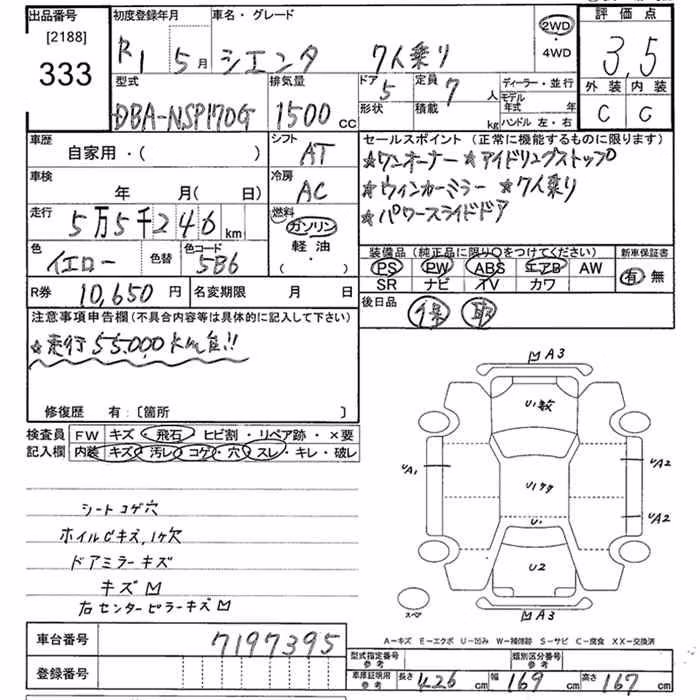 出品番号 初度登録年月 車名・グレード 評価点
[2188]
333
R1 5月 シエンタ 7人乗り 2WD 3.5
4WD
外装 内装
C C
型式 排気量 ドア 5 定員 7人 ディーラー・並行
DBA-NSP170G 1500CC 形状 積載 kg モデル年式 年
ハンドル 左・右
車歴 シフト セールスポイント (正常に機能するものに限ります)
自家用・( ) AT ☆ワンオーナー ☆アイドリングストップ
車検 冷房 ☆ウィンカーミラー ☆7人乗り
年 月(日) AC ☆パワースライドドア
走行 5万5千246km 燃料
ガソリン
軽油
(・)
色 イエロー 色替 色コード 5B6
装備品 (純正品に限り○をつけてください) 新車保証書
PS PW ABS エアB AW 有・無
SR ナビ TV カワ
R券 10,650円 名変期限 月 日 後日品 保 取
注意事項申告欄 (不具合内容等は具体的に記入して下さい)
☆走行55,000km台!!
修復歴 有:[箇所 ]
検査員 FW キズ・飛石・ヒビ割・リペア跡・×要
記入欄 内装 キズ・汚レ・コゲ・穴・スレ・キレ・破レ
シートコゲ穴
ホイルビキズ,1ケ欠
ドアミラーキズ
キズM
右センターピラーキズM
MA3
U1数
UA1
U1ケタ
UA2
UA2
U1
U2
スペア
MA3
A-キズ E-エクボ U-凹み W-補修跡 S-サビ C-腐食 XX-交換済
車台番号 7197395
登録番号
型式指定番号 参考 類別区分番号 参考
車庫証明用 参考 長さ 426cm 幅 169cm 高さ 167cm